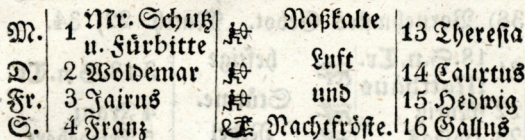 M. 1 Mr. Schutz u. Fürbitte Naßkalte 13 Theresia
D. 2 Woldemar Luft 14 Calixtus
Fr. 3 Jairus und 15 Hedwig
S. 4 Franz Nachtfröste. 16 Gallus